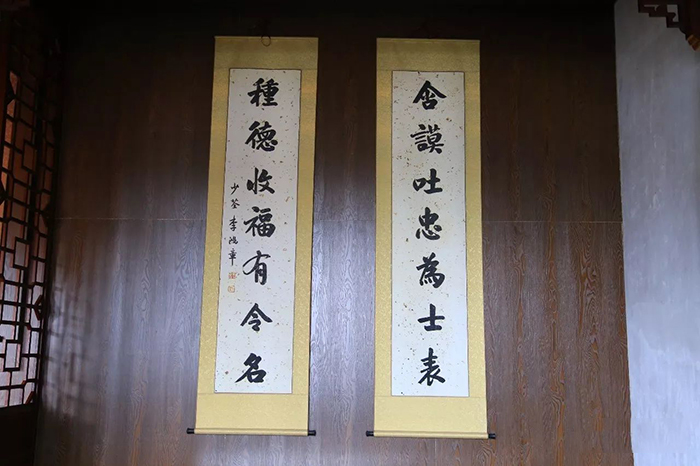 含謨吐忠為士表
種德收福有令名
少荃李鴻章